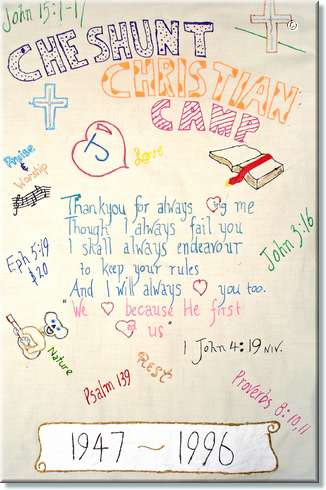 John 15:1-17
©
CHESHUNT
CHRISTIAN
CAMP
Praise
&
Worship
J
Love
Thankyou for always ing me
Though I always fail you
I shall always endeavour
to keep your rules
And I will always you too.
"We because He first
us"
1 John 4:19 NIV.
John 3:16
Eph 5:19
& 20
Nature
Rest
Psalm 139
Proverbs 8:10,11
1947 ~ 1996